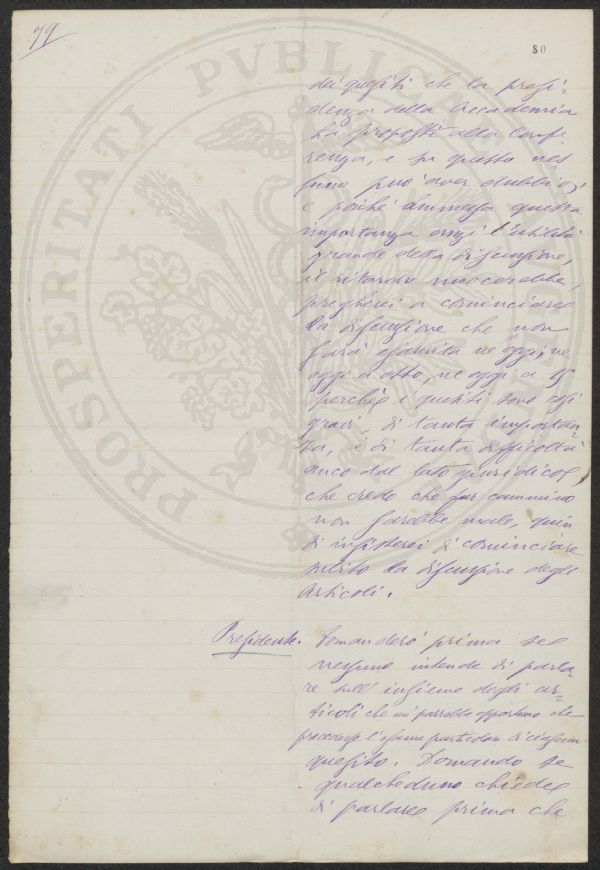 79
80
PROSPERITATI PVBLICAE
dei quesiti che la presi-
denza della Accademia
ha proposti alla confe
renza, e su questo nes
suno può aver dubbio;
e poiché ammessa questa
importanza anzi l'utilità
grande della discussione,
il ritardo nuocerebbe,
pregherei a cominciare
la discussione che non
sarà esaurita ne oggi, ne
oggi a otto, ne oggi a 15
perché i quesiti sono così
gravi, di tanta importan
za, e di tanta difficoltà
anco dal lato giuridico
che credo che cammino
non sarebbe male, quin
di insisterei di cominciare
subito la discussione degli
articoli.
Presidente. Domanderò prima se
nessuno intende di parla
re sull'insieme degli ar-
ticoli che mi parrebbe opportuno che
precedesse l'esame particolare di ciascun
quesito. Domando se
qualcheduno chiede
di parlare prima che